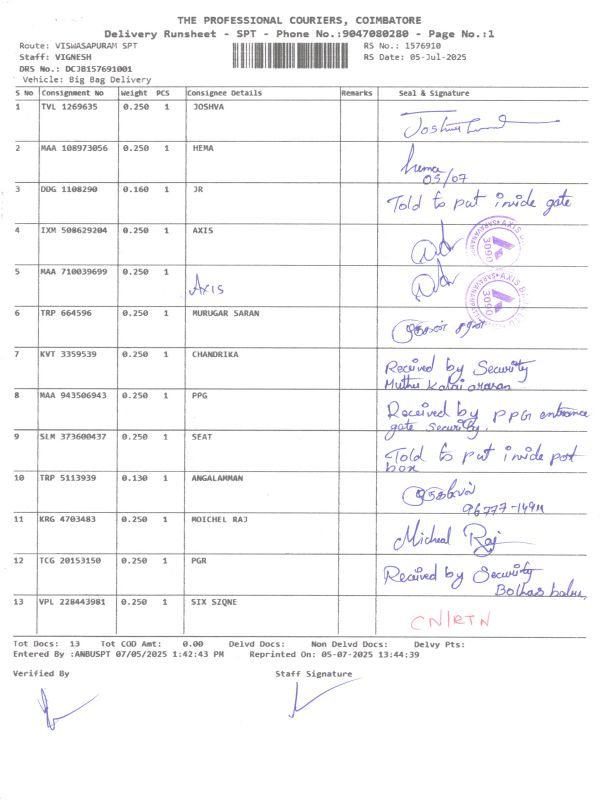 THE PROFESSIONAL COURIERS, COIMBATORE
Delivery Runsheet - SPT - Phone No.:9047080280 - Page No.:1
Route: VISWASAPURAM SPT RS No.: 1576910
Staff: VIGNESH RS Date: 05-Jul-2025
DRS No.: DCJB157691001
Vehicle: Big Bag Delivery
S No Consignment No Weight PCS Consignee Details Remarks Seal & Signature
1 TVL 1269635 0.250 1 JOSHVA Joshua
2 MAA 108973056 0.250 1 HEMA hema
05/07
3 DDG 1108290 0.160 1 JR Told to put inside gate
4 IXM 508629204 0.250 1 AXIS AXIS 3090
5 MAA 710039699 0.250 1 Axis AXIS 3090
6 TRP 664596 0.250 1 MURUGAR SARAN
7 KVT 3359539 0.250 1 CHANDRIKA Received by Security
Muthu
8 MAA 943506943 0.250 1 PPG Received by PPG entrance
gate security.
9 SLM 373600437 0.250 1 SEAT Told to put inside post
box
10 TRP 5113939 0.130 1 ANGALAMMAN
96777-
11 KRG 4703483 0.250 1 MOICHEL RAJ Micheal Raj
12 TCG 20153150 0.250 1 PGR Received by Security
13 VPL 228443981 0.250 1 SIX SZQNE CN/RTN
Tot Docs: 13 Tot COD Amt: 0.00 Delvd Docs: Non Delvd Docs: Delvy Pts:
Entered By :ANBUSPT 07/05/2025 1:42:43 PM Reprinted On: 05-07-2025 13:44:39
Verified By Staff Signature